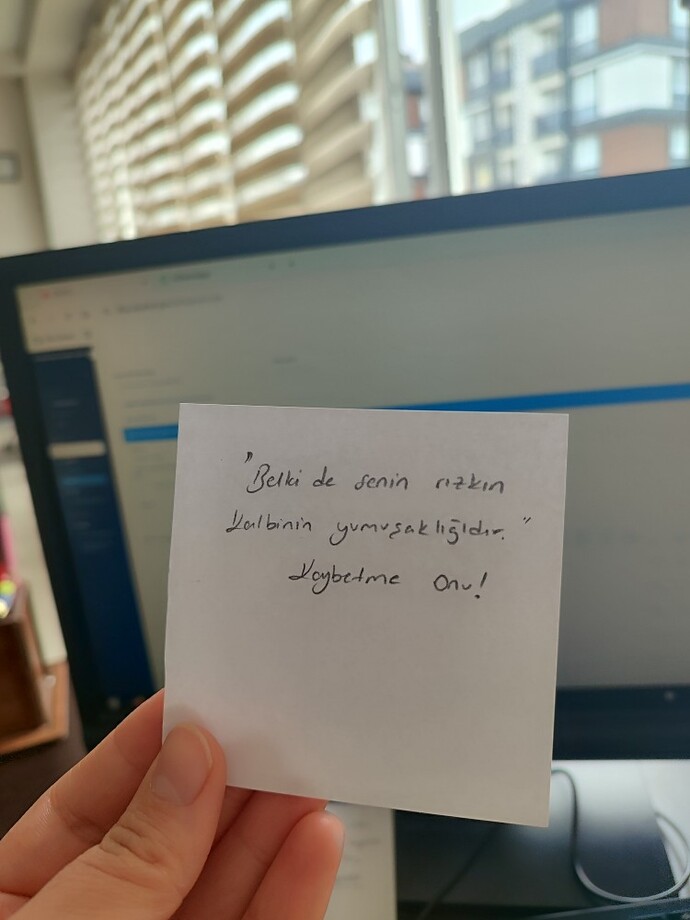 "Belki de senin rızkın
Kalbinin yumuşaklığıdır."
Kaybetme onu!